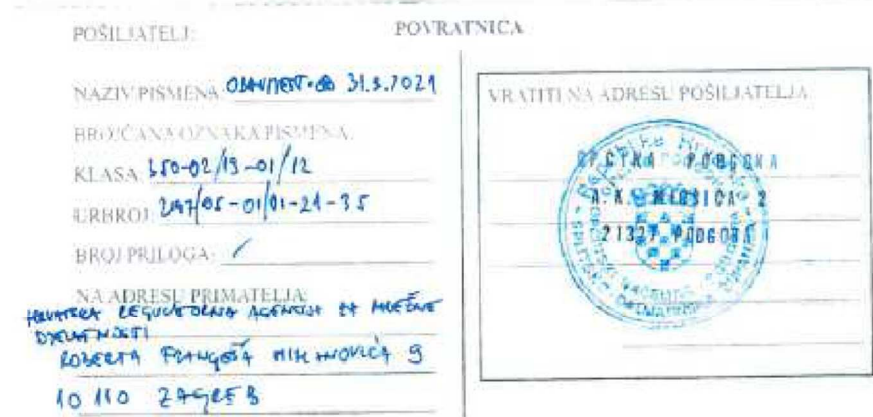 POŠILJATELJ:
POVRATNICA
NAZIV PISMENA: OBAVIJEST OD 31.3.2021
BROJČANA OZNAKA PISMENA:
KLASA: 350-02/19-01/12
URBROJ: 2147/05-01/01-21-35
BROJ PRILOGA: /
NA ADRESU PRIMATELJA:
HRVATSKA REGULATORNA AGENCIJA ZA MREŽNE
DJELATNOSTI
ROBERTA FRANGEŠA MIHANOVIĆA 9
10 110 ZAGREB
VRATITI NA ADRESU POŠILJATELJA
OPĆINA PODGORA
A.K. MIOŠIĆA 2
21327 PODGORA